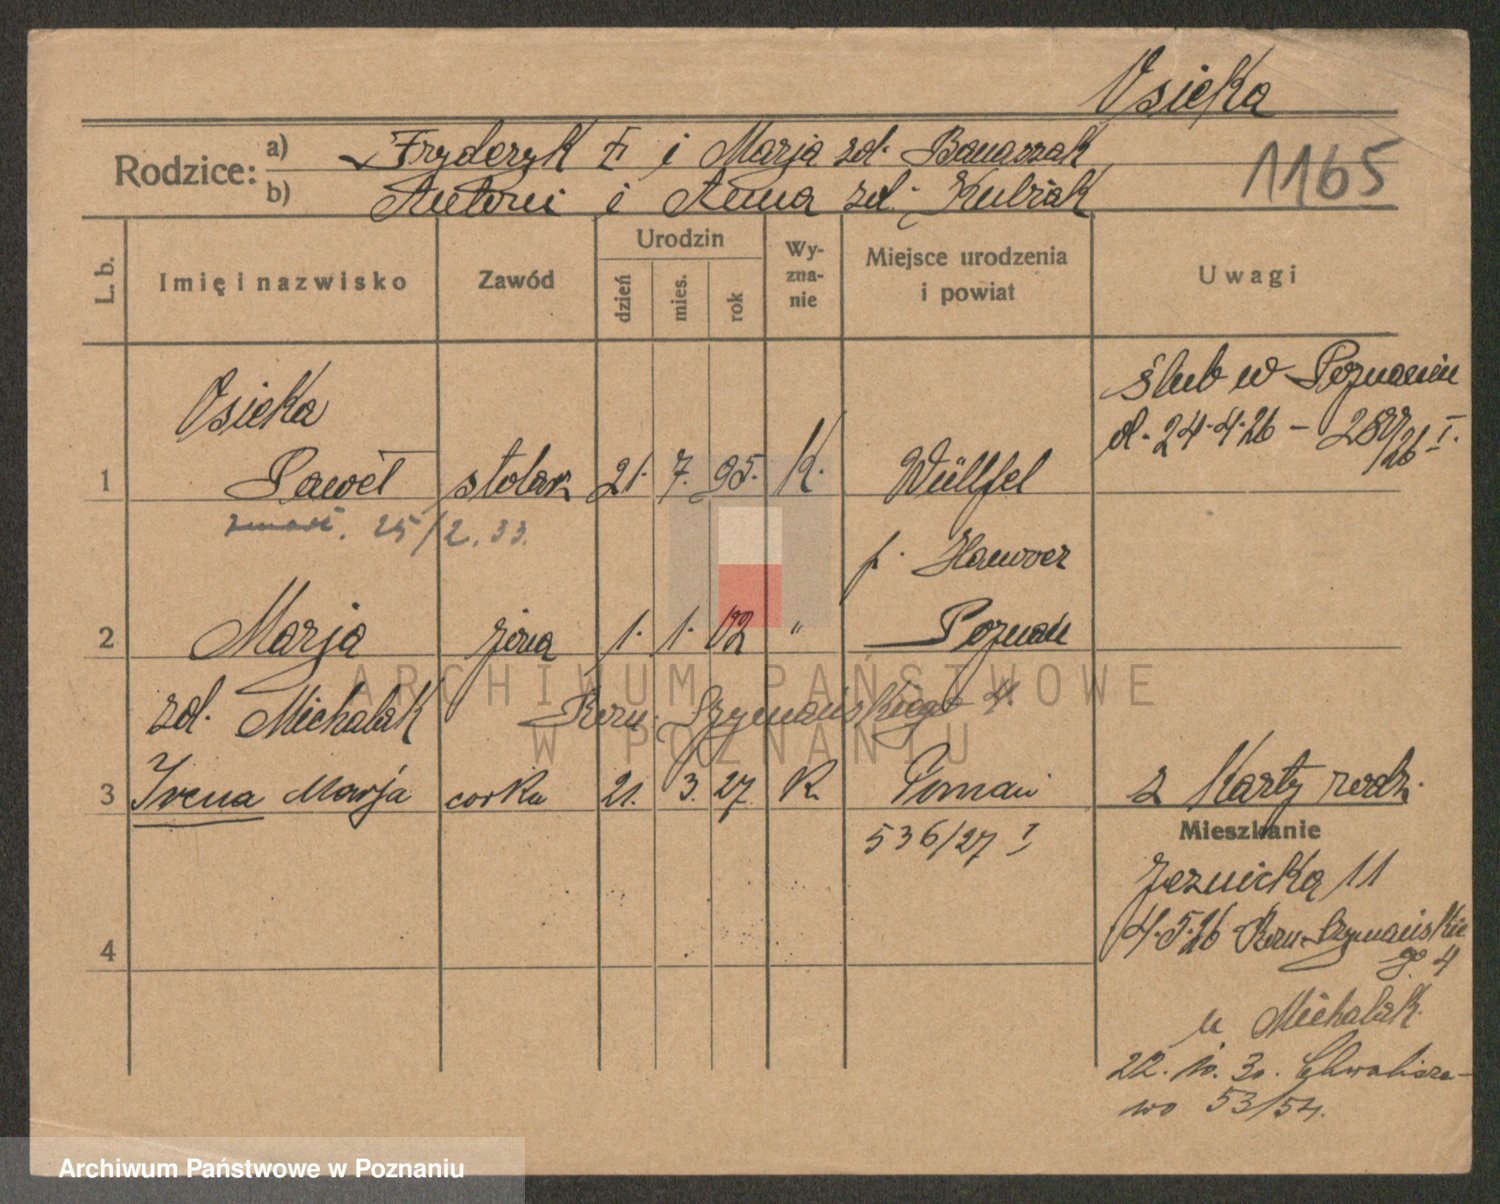 Osieka
Rodzice:
a) Fryderyk i Marja zd. Banaszak
b) Antoni i Anna zd. Kubiak
1165
L. b.
Imię i nazwisko
Zawód
Urodzin
dzień
mies.
rok
Wy-
zna-
nie
Miejsce urodzenia
i powiat
Uwagi
Osieka
1 Paweł stolarz 21. 7. 95. K. Wüllfel
zmarł. 25/2.33.
p. Hanower
ślub w Poznaniu
d. 24.4.26 – /26 I.
2 Marja żona 1. 1. 02 " Poznań
zd. Michalak Szymańskiego 4.
3 Irena Marja corka 21. 3. 27. K. Poznań
z Karty rodz.
536/27 I
Mieszkanie
11
4.5.26 Szymańskie
go 4
4
u Michalak.
22. 10. 30. Chwalisze-
wo 53/54.
ARCHIWUM PAŃSTWOWE
W POZNANIU
Archiwum Państwowe w Poznaniu